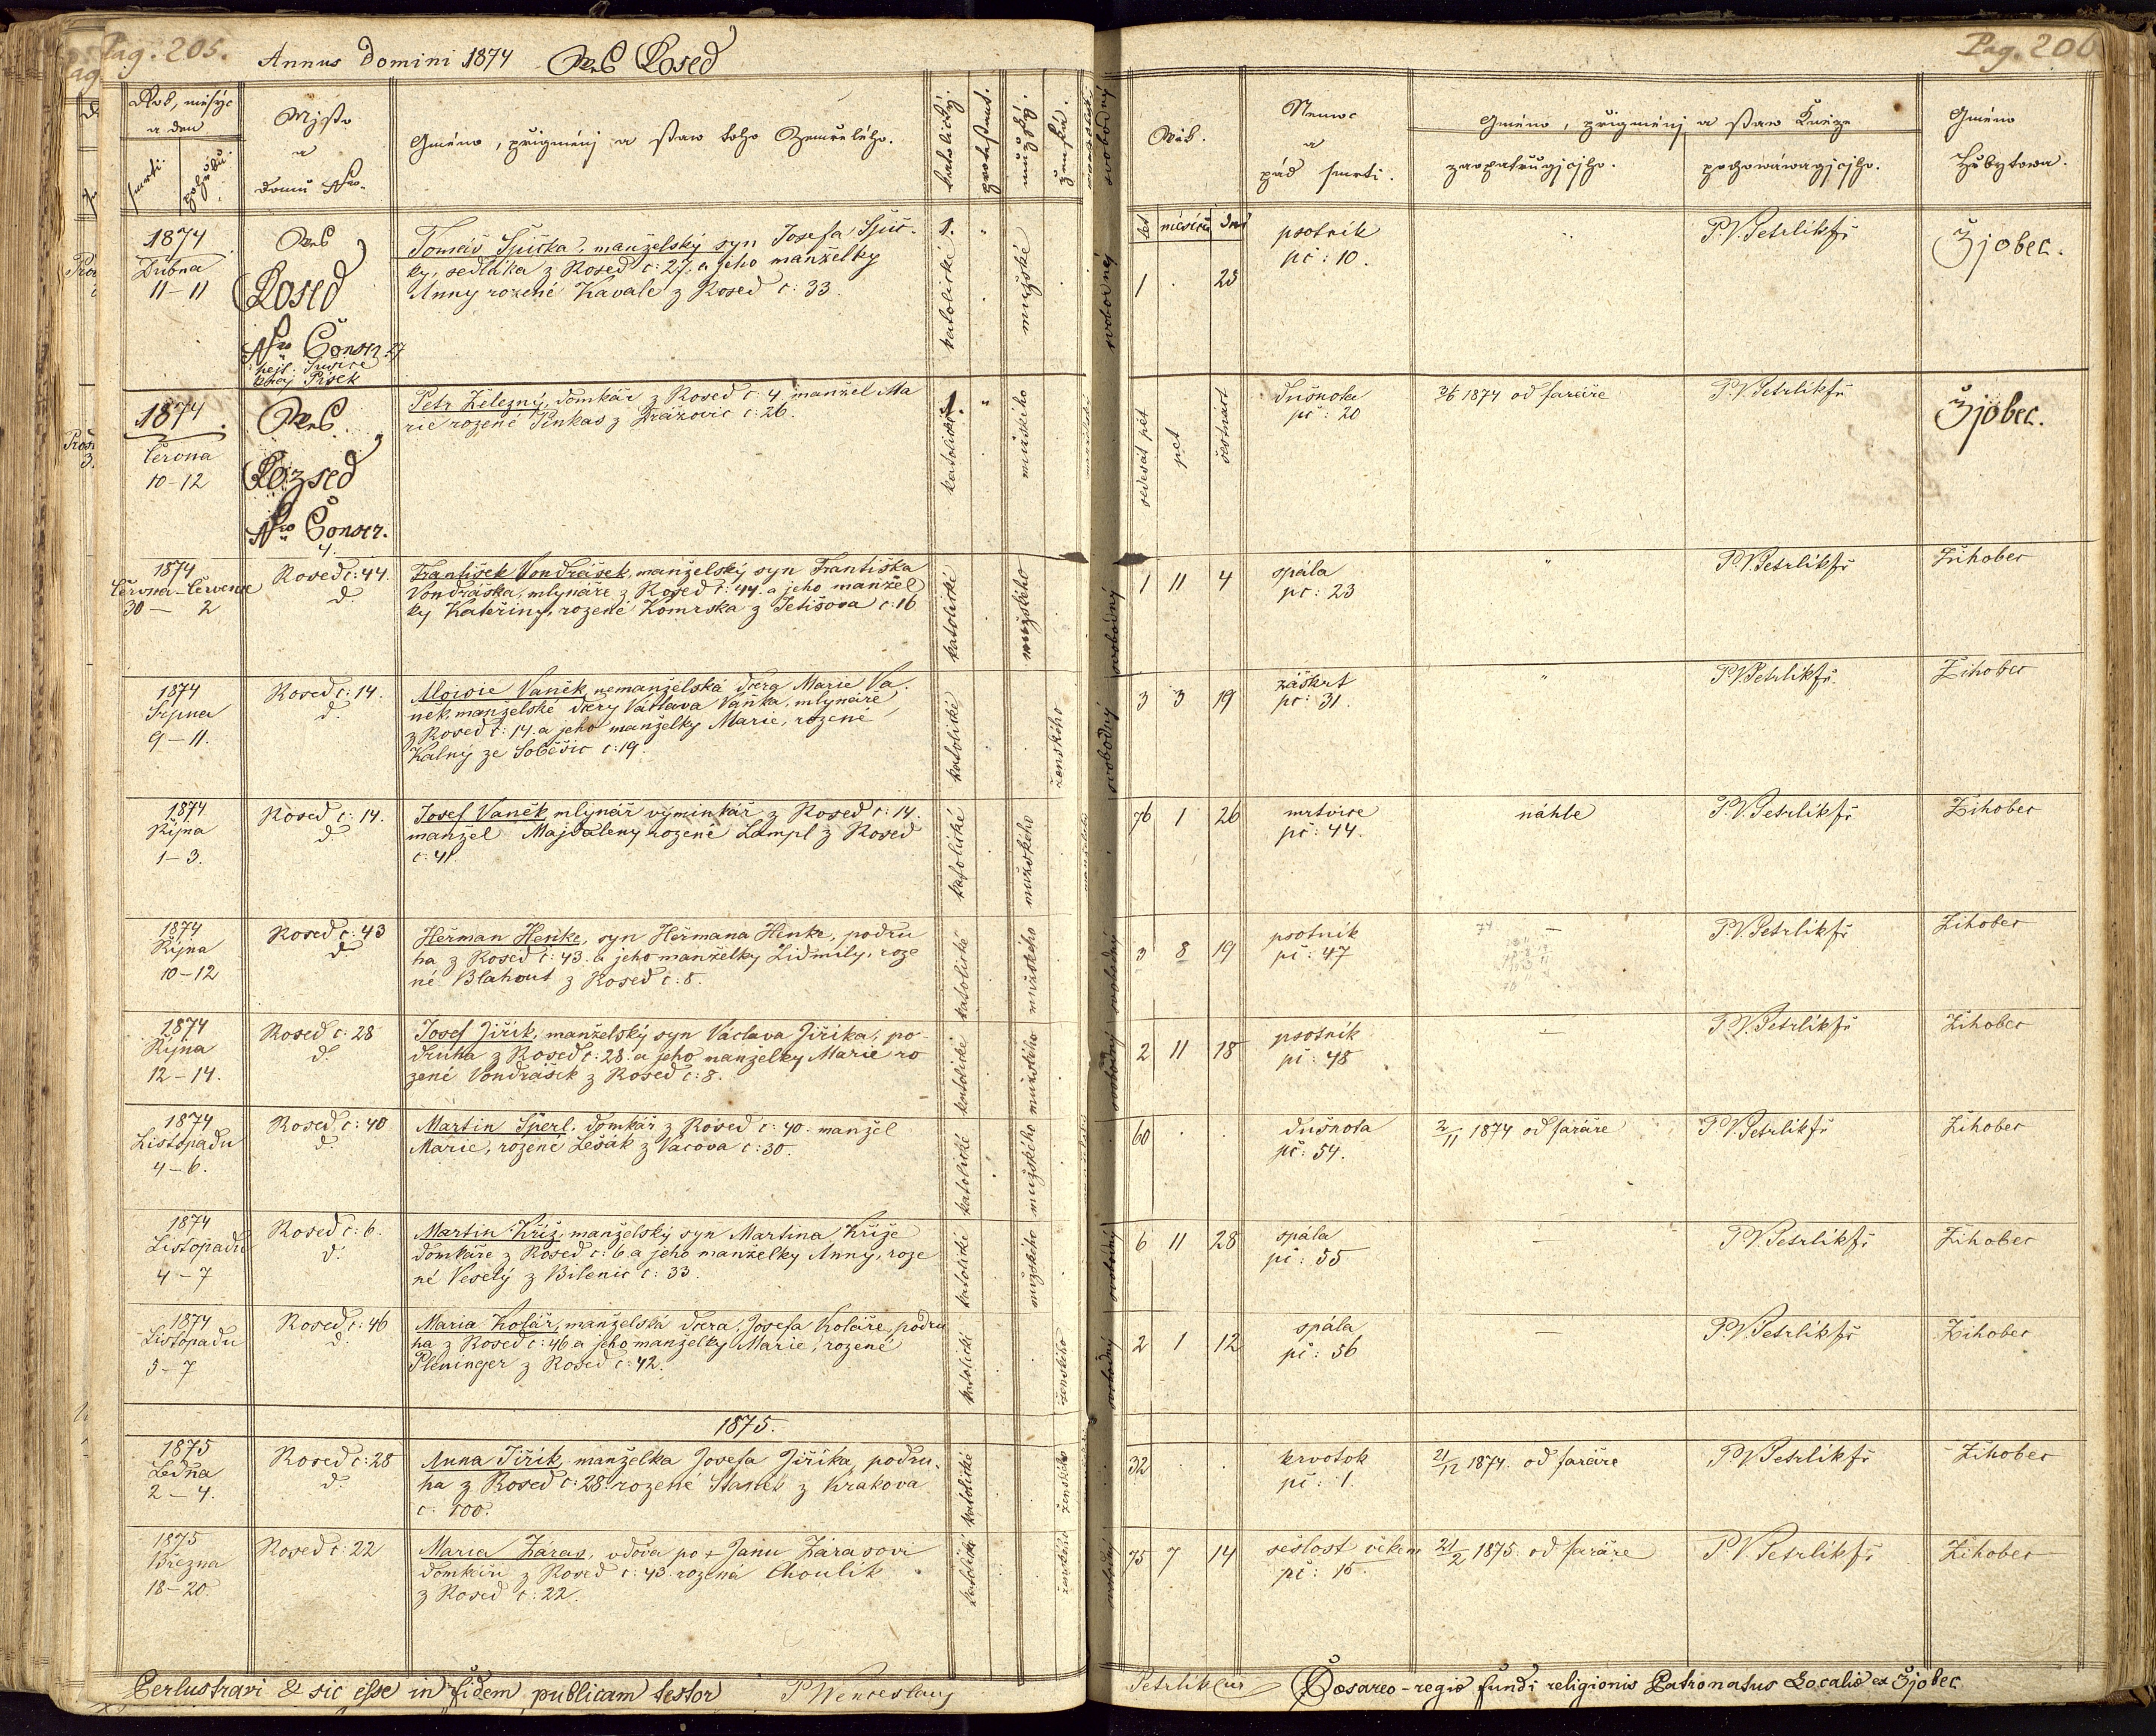 Pag. 205.
Annus Domini 1874 Ves Rosed
Pag. 206
Rok, měsýc
a den
smrti.
pohřbu.
Mjsto
a
domu Nro.
Gméno, přigménj a staw toho Zemřelého.
katolický.
protestant.
mužský.
ženská.
Wěk.
let
měsíců
dnů
Nemoc
a
pád smrti.
Gméno, přigménj a staw Kněze
zaopatrugjcýho.
pochowáwagjcýho.
Gméno
Hřbytowa.
1874
Dubna
11-11
Ves
Rosed
Nro Conscr. 27
hejt. Sušice
kraj Písek
Tomáš Špička, manželský syn Josefa Špič-
ky, sedláka z Rosed č: 27. a jeho manželky
Anny rozené Kavale z Rosed č: 33.
1.
katolické
mužské
svobodný
1 . 25
psotník
pč: 10.
P. V. Petrlík fř
Žjobec.
1874
Června
10-12
Ves
Rozsed
Nro Conscr.
4.
Petr Železný, domkář z Rosed č: 4, manžel Ma
rie rozené Pinkas z Strážovic č: 26.
1.
katolické
mužského
šedesát pět
pět
šestnáct
Dušnota
pč: 20
3/6 1874 od faráře
P. V. Petrlík fř
Žjobec.
1874
Června-Července
30 - 2
Rosed č: 44.
d.
František Vondrášek, manželský syn Františka
Vondráška, mlynáře z Rosed č: 44. a jeho manžel
ky Kateřiny, rozené Komrska z Tetišova č: 16
katolické
mužského
svobodný
1 11 4
spála
pč: 23
"
P. V. Petrlík fř
Žihobec
1874
Srpna
9-11.
Rosed č: 14.
d.
Aloisie Vaněk, nemanželská dcera Marie Va-
něk, manželské dcery Václava Vaňka, mlynáře
z Rosed č: 14. a jeho manželky Marie, rozené
Kalný ze Soběšic č: 19.
katolické
ženského
svobodný
3 3 19
záškrt
pč: 31.
"
P. V. Petrlík fř
Žihobec
1874
Října
1-3.
Rosed č: 14.
d.
Josef Vaněk, mlynář výminkář z Rosed č: 14.
manžel Majdaleny rozené Lampl z Rosed
č: 41.
katolické
mužského
76 1 26
mrtvice
pč: 44.
náhle
P. V. Petrlík fř
Žihobec
1874
Října
10-12
Rosed č: 43
d.
Heřman Henke, syn Heřmana Henke, podru
ha z Rosed č: 43. a jeho manželky Lidmily, roze
né Blahout z Rosed č: 8.
katolické
mužského
svobodný
3 8 19
psotník
pč: 47
—
P. V. Petrlík fř
Žihobec
1874
Října
12-14.
Rosed č: 28
d.
Josef Jiřík, manželský syn Václava Jiříka, po-
druha z Rosed č: 28. a jeho manželky Marie ro
zené Vondrášek z Rosed č: 8.
katolické
mužského
svobodný
2 11 18
psotník
pč: 48
—
P. V. Petrlík fř
Žihobec
1874
Listopadu
4-6.
Rosed č: 40
d.
Martin Šperl, domkář z Rosed č: 40. manžel
Marie, rozené Lešák z Vacova č: 30.
katolické
mužského
60 . .
dušnota
pč: 54.
2/11 1874 od faráře
P. V. Petrlík fř
Žihobec
1874
Listopadu
4-7
Rosed č: 6.
d.
Martin Kříž, manželský syn Martina Kříže
domkáře z Rosed č: 6. a jeho manželky Anny, roze
né Veselý z Bilenic č: 33.
katolické
mužského
svobodný
6 11 28
spála
pč: 55
—
P. V. Petrlík fř
Žihobec
1874
Listopadu
5-7
Rosed č: 46
d.
Maria Kolář, manželská dcera, Josefa Koláře, podru
ha z Rosed č: 46 a jeho manželky Marie, rozené
Pleninger z Rosed č: 42.
katolické
ženského
svobodný
2 1 12
spála
pč: 56
—
P. V. Petrlík fř
Žihobec
1875.
1875
Ledna
2-4.
Rosed č: 28
d.
Anna Jiřík, manželka Josefa Jiříka, podru-
ha z Rosed č: 28. rozené Staněk z Krakova
č: 100.
katolické
ženského
32 . .
krvotok
pč: 1.
21/12 1874. od faráře
P. V. Petrlík fř
Žihobec
1875
Března
18-20.
Rosed č: 22
Maria Záras, vdova po + Janu Zárasovi
domkáři z Rosed č: 43. rozená Choulík
z Rosed č: 22.
katolické
ženského
75 7 14
sešlost věkem
pč: 15.
21/2 1875. od faráře
P. V. Petrlík fř
Žihobec
Perlustravi & sic esse in fidem publicam testor P Wenceslaus
Petrlík cur Caesareo-regio fundi religionis Patronatus Localis ex Žjobec